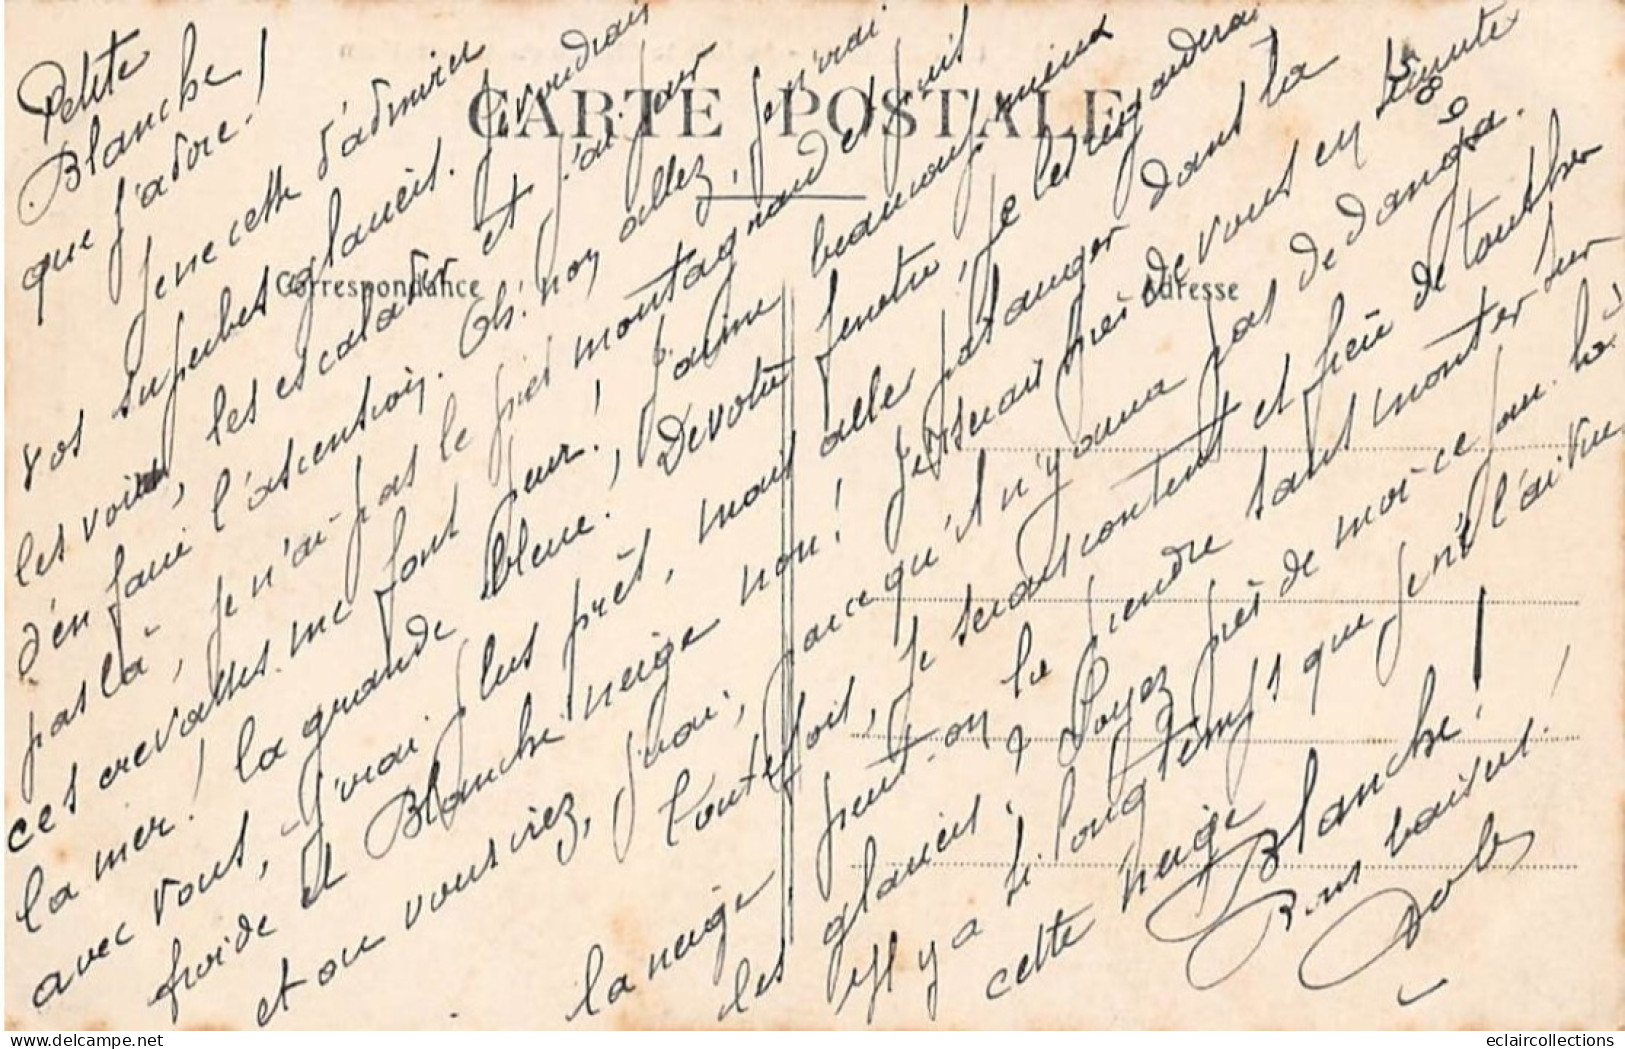 CARTE POSTALE
Correspondance
Adresse
Petite
Blanche !
que j'adore.
Je ne cette d'admirer
vos superbes glaciers. Je voudrais
les voir, les escalader et j'ai peur
d'en faire l'ascention. Oh! non allez, je n'irai
pas là, je n'ai pas le pied montagnard et puis
ces crevasses me font peur ! J'aime beaucoup mieux
la mer ! la grande bleue. Devotre fenetre, je les regarderai
avec vous, j'irai plus prêt, mais aller patauger dans la
froide et Blanche neige non ! Je serais près de vous en
et ou vous irez, j'irai, parce qu'il n'y aura pas de danger.
Toutefois, je serais content et fier de toucher
la neige, peut-on la prendre sans monter sur
les glaciers ? Soyez près de moi ce jour-là
Il y a si longtemps que je ne l'ai vu
cette neige Blanche !
Bons baisers !
58
eclaircollections